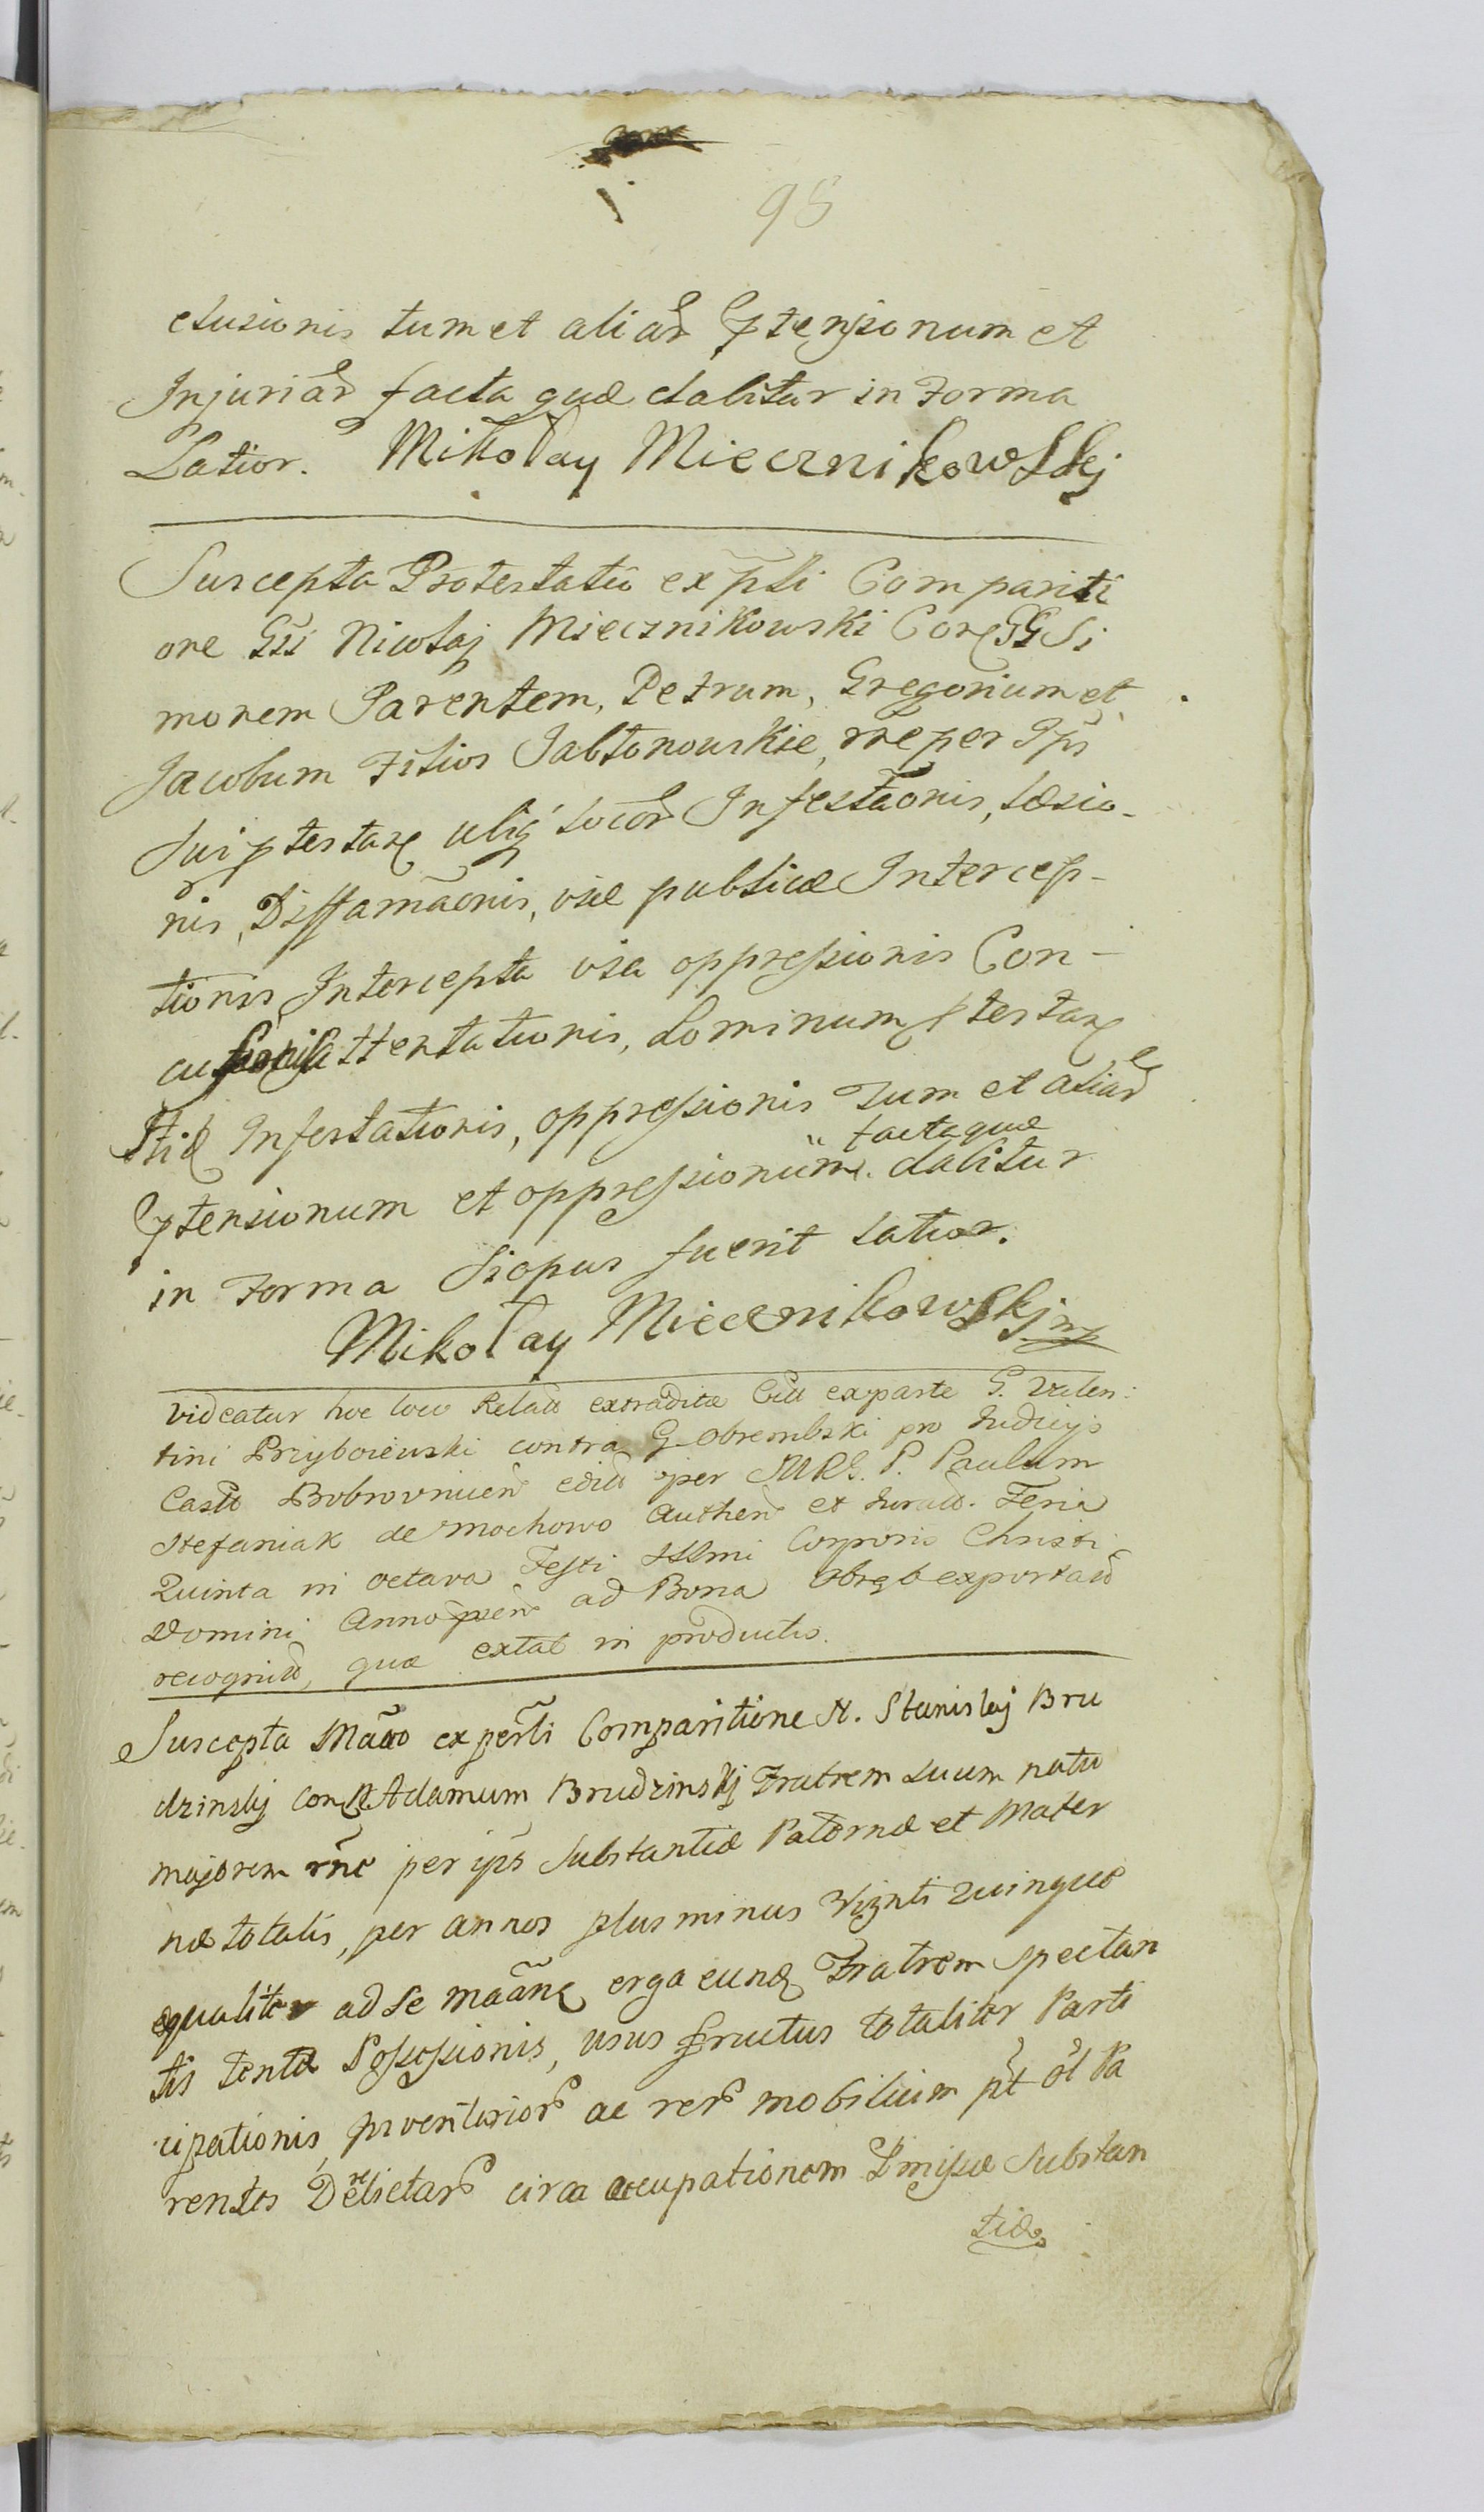 95
clusionis tum et aliar ptensionum et
Injuriar facta quæ dabitur in Forma
Latior. Mikołay Miecznikowskj
Suscepta Protestatio ex psti Compariti
one Gsi Nicolaj Miecznikowski Con GG Si
monem Parentem, Petrum, Gregorium et
Jacobum Filios Jabłonowskie, rne per Ips
sui ptestan ubiq locor Infestaonis, læsio-
nis, Diffamaonis, viæ publicæ Intercep-
tionis Intercepta via oppressionis Con-
attentationis, Dominum ptestan
Infestationis, oppressionis Tum et aliar
facta quæ
ptensionum et oppressionum. dabitur
in Forma Siopus fuerit latior.
Mikołay Miecznikowskj mp
Videatur hoc loco Relao extraditæ Citt exparte G. Valen:
tini Przyboiewski contra G Obrembski pro Judicijs
Castr Bobrovnicen edit per MRG. P. Paulum
Stefaniak de Mochowo Authen et Jurat. Feria
Quinta in octava Festi SSmi Corporis Christi
Domini Anno pren ad Bona Obręb exportat
recognit, quæ extat in productis.
Suscepta Maao ex persti Comparitione N. Stanislaj Bru
dzinskj con N Adamum Brudzinskj Fratrem suum natu
majorem rne per ips substantiæ Paternæ et Mater
næ totalis, per annos plus minus Viginti Quinque
equaliter ad se maan erga eund Fratrem spectan
tis tentæ Possessionis, usus fructus totaliter Parti
cipationis, inventarior ac rer mobilium pt ol Pa
rentes Derelictar circa occupationem pmissæ Substan
tiæ